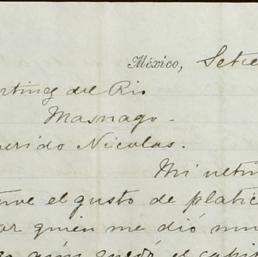 México, Setie
rtinez del Rio
Masnago.
uerido Nicolas.
Mi ultim
tuve el gusto de platic
ar quien me dió mu